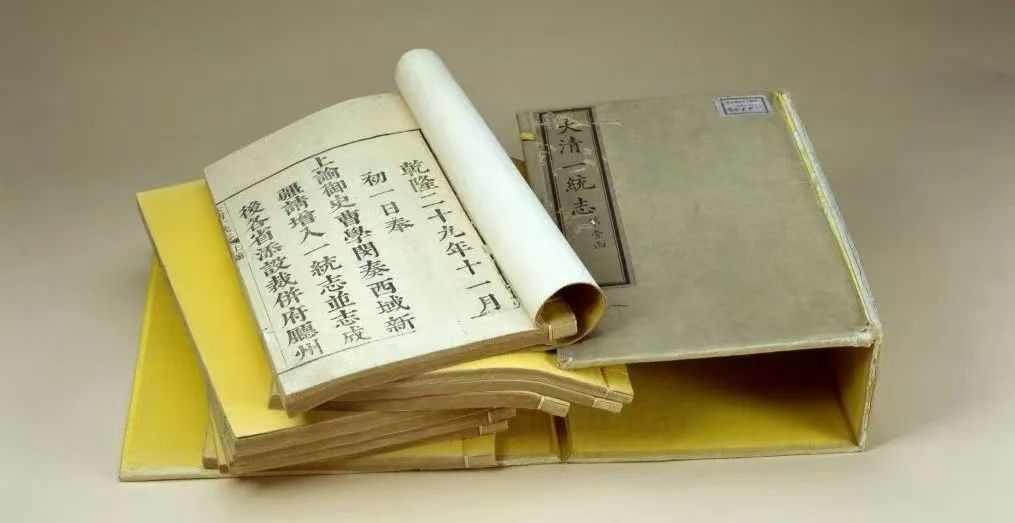 大清一統志
乾隆二十九年十一月
初一日奉
上諭御史曹學閔奏西域新
疆請增入一統志並志成
後各省添設裁併府廳州